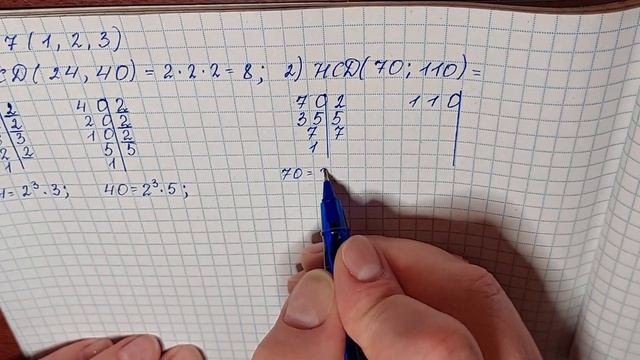 7 (1, 2, 3)
СД(24, 40) = 2·2·2 = 8; 2) НСД(70; 110) =
2 40 2 70 2 110
2 20 2 35 5
3 3 10 2 7 7
2 2 5 5 1
1 1
= 2³·3; 40 = 2³·5; 70 =